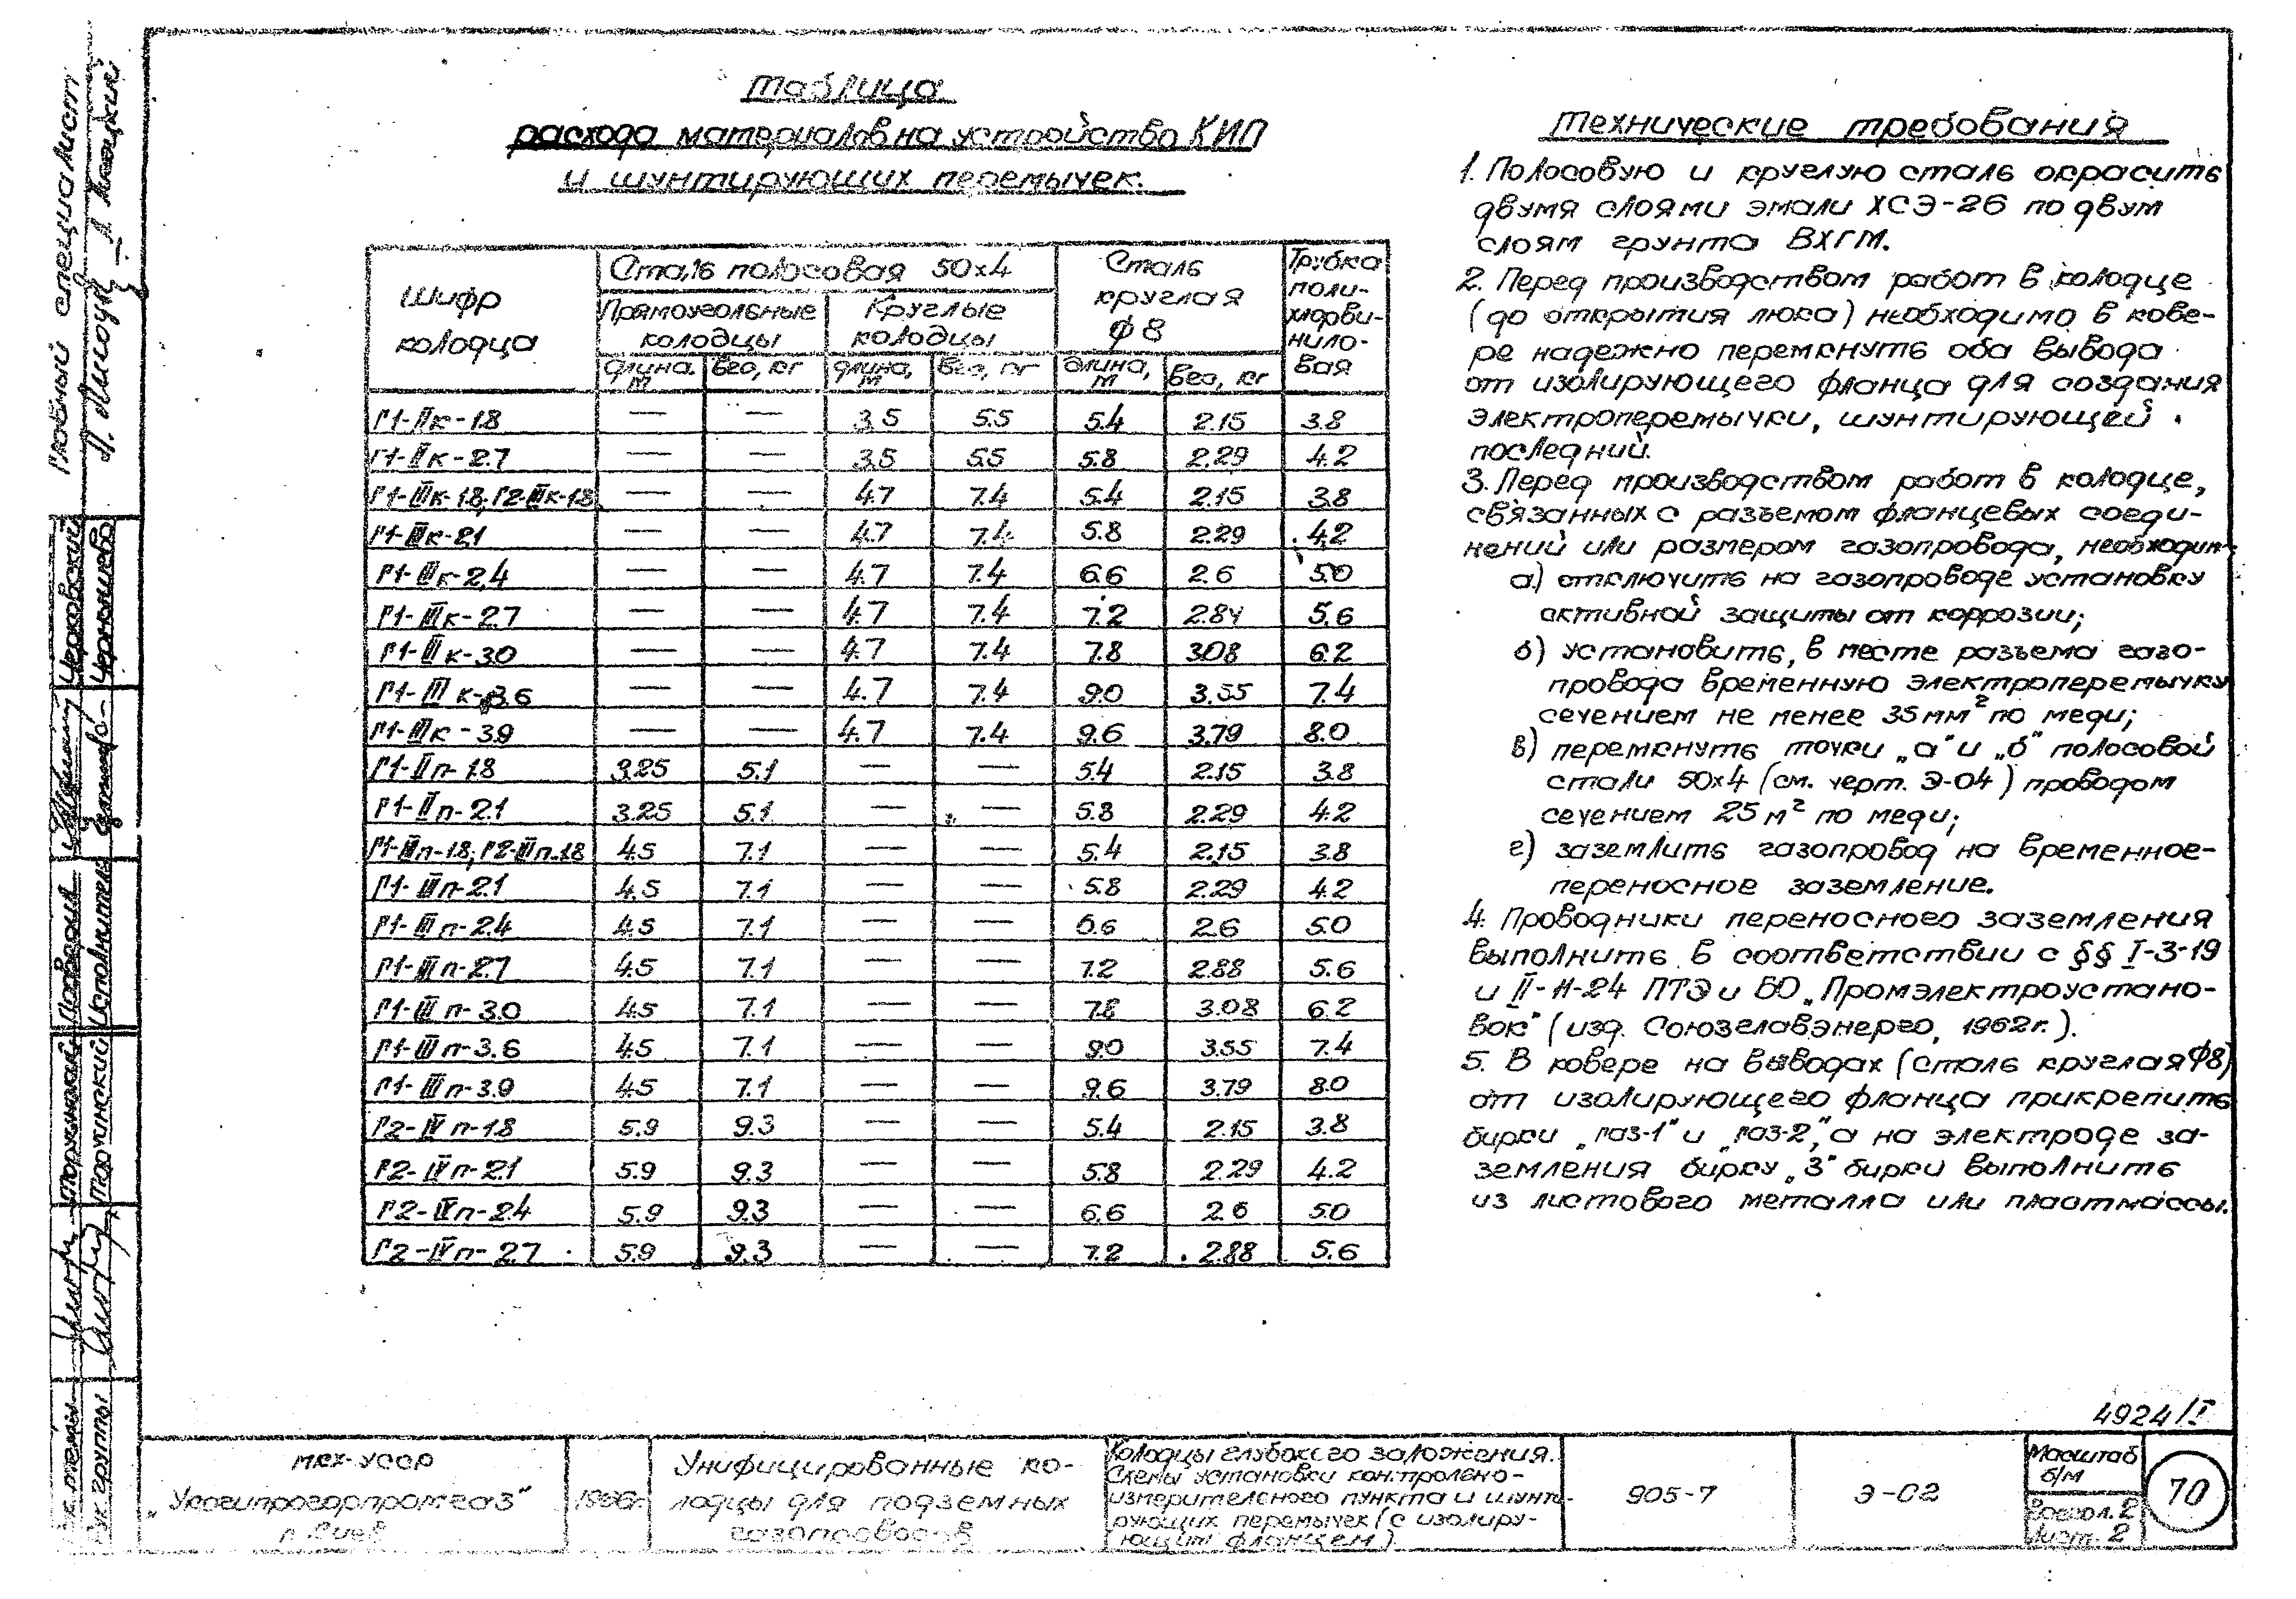 Таблица
расхода материалов на устройство КИП
и шунтирующих перемычек.
Шифр колодца | Сталь полосовая 50х4 | Сталь круглая ф8 | Трубка поли-хлорви-нило-вая
Прямоугольные колодцы | Круглые колодцы
длина, м | вес, кг | длина, м | вес, кг | длина, м | вес, кг
Г1-IIк-1.8 — — 3.5 5.5 5.4 2.15 3.8
Г1-IIк-2.7 — — 3.5 5.5 5.8 2.29 4.2
Г1-IIIк-1.8; Г2-IIIк-1.8 — — 4.7 7.4 5.4 2.15 3.8
Г1-IIIк-2.1 — — 4.7 7.4 5.8 2.29 4.2
Г1-IIIк-2.4 — — 4.7 7.4 6.6 2.6 5.0
Г1-IIIк-2.7 — — 4.7 7.4 7.2 2.84 5.6
Г1-IIIк-3.0 — — 4.7 7.4 7.8 3.08 6.2
Г1-IIIк-3.6 — — 4.7 7.4 9.0 3.55 7.4
Г1-IIIк-3.9 — — 4.7 7.4 9.6 3.79 8.0
Г1-IIп-1.8 3.25 5.1 — — 5.4 2.15 3.8
Г1-IIп-2.1 3.25 5.1 — — 5.8 2.29 4.2
Г1-IIIп-1.8; Г2-IIIп-1.8 4.5 7.1 — — 5.4 2.15 3.8
Г1-IIIп-2.1 4.5 7.1 — — 5.8 2.29 4.2
Г1-IIIп-2.4 4.5 7.1 — — 6.6 2.6 5.0
Г1-IIIп-2.7 4.5 7.1 — — 7.2 2.88 5.6
Г1-IIIп-3.0 4.5 7.1 — — 7.8 3.08 6.2
Г1-IIIп-3.6 4.5 7.1 — — 9.0 3.55 7.4
Г1-IIIп-3.9 4.5 7.1 — — 9.6 3.79 8.0
Г2-IVп-1.8 5.9 9.3 — — 5.4 2.15 3.8
Г2-IVп-2.1 5.9 9.3 — — 5.8 2.29 4.2
Г2-IVп-2.4 5.9 9.3 — — 6.6 2.6 5.0
Г2-IVп-2.7 5.9 9.3 — — 7.2 2.88 5.6
Технические требования
1. Полосовую и круглую сталь окрасить
двумя слоями эмали ХСЭ-26 по двум
слоям грунта ВХГМ.
2. Перед производством работ в колодце
(до открытия люка) необходимо в кове-
ре надежно перемкнуть оба вывода
от изолирующего фланца для создания
электроперемычки, шунтирующей
последний.
3. Перед производством работ в колодце,
связанных с разъемом фланцевых соеди-
нений или размером газопровода, необходим
а) отключить на газопроводе установку
активной защиты от коррозии;
б) установить, в месте разъема газо-
провода временную электроперемычку
сечением не менее 35мм² по меди;
в) перемкнуть точки „а" и „б" полосовой
стали 50х4 (см. черт. Э-04) проводом
сечением 25м² по меди;
г) заземлить газопровод на временное-
переносное заземление.
4. Проводники переносного заземления
выполнить в соответствии с §§ I-3-19
и II-11-24 ПТЭ и БО „Промэлектроустано-
вок" (изд. Союзглавэнерго, 1962г.).
5. В ковере на выводах (сталь круглая ф8)
от изолирующего фланца прикрепить
бирки „газ-1" и „газ-2", а на электроде за-
земления бирку „З" бирки выполнить
из листового металла или пластмассы.
4924/I
МКХ-УССР
„Укргипрогорпромгаз"
г. Киев
1966г.
Унифицированные ко-
лодцы для подземных
газопроводов
Колодцы глубокого заложения.
Схемы установки контрольно-
измерительного пункта и шунти-
рующих перемычек (с изолиру-
ющим фланцем).
905-7
Э-02
Масштаб
б/м
Лист. 2
70
Главный специалист
Проверил
Исполнитель
Рук. группы